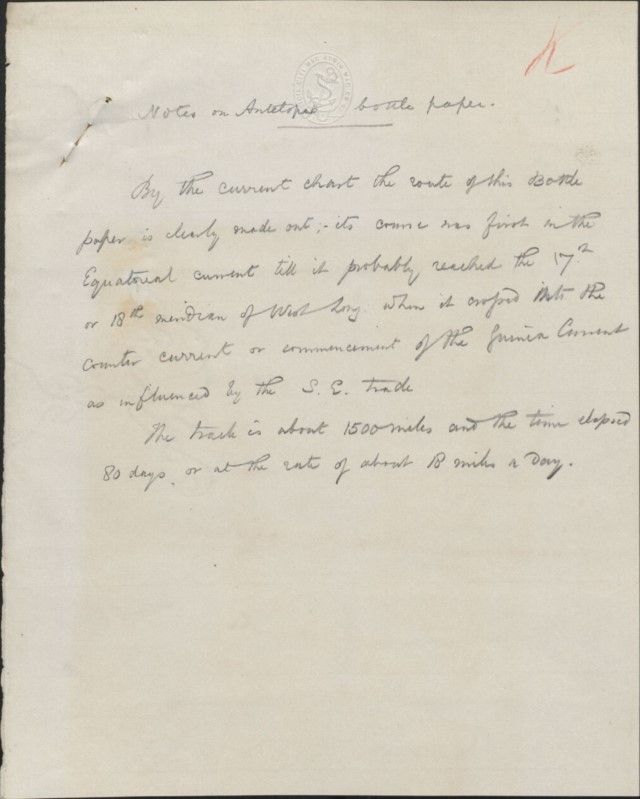 K
Notes on Antelope bottle paper.
By the current chart the route of this Bottle
paper is clearly made out;- its course was first in the
Equatorial current till it probably reached the 17th
or 18th meridian of West Long. when it crossed into the
Counter current or commencement of the Guinea Current
as influenced by the S. E. trade
The track is about 1500 miles and the time elapsed
80 days, or at the rate of about 18 miles a day.